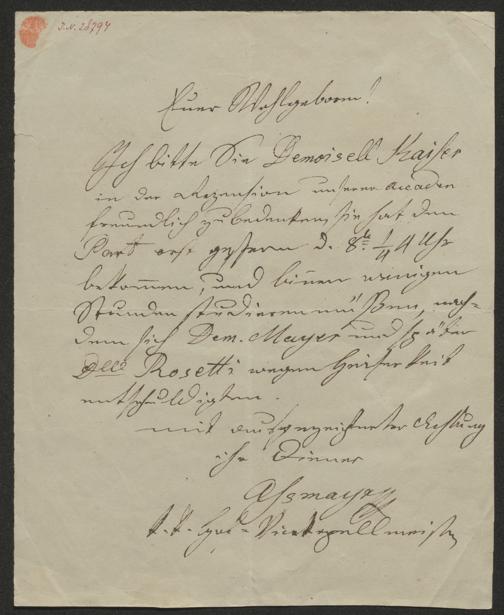 I.N. 28797
Euer Wohlgeboren!
Ich bitte Sie Demoisell Kaiser
in der Rezension unserer Academ
freundlich zu bedenken, sie hat den
Part erst gestern d. 8t. 1/4 4 Uhr
bekommen, und binnen wenigen
Stunden studieren müßen, nach-
dem sich Dem. Mayer und später
Dlle Rosetti wegen Heiserkeit
entschuldigten.
mit ausgezeichneter Achtung
ihr Diener
Assmayr
k. k. Hof-Vicekapellmeister